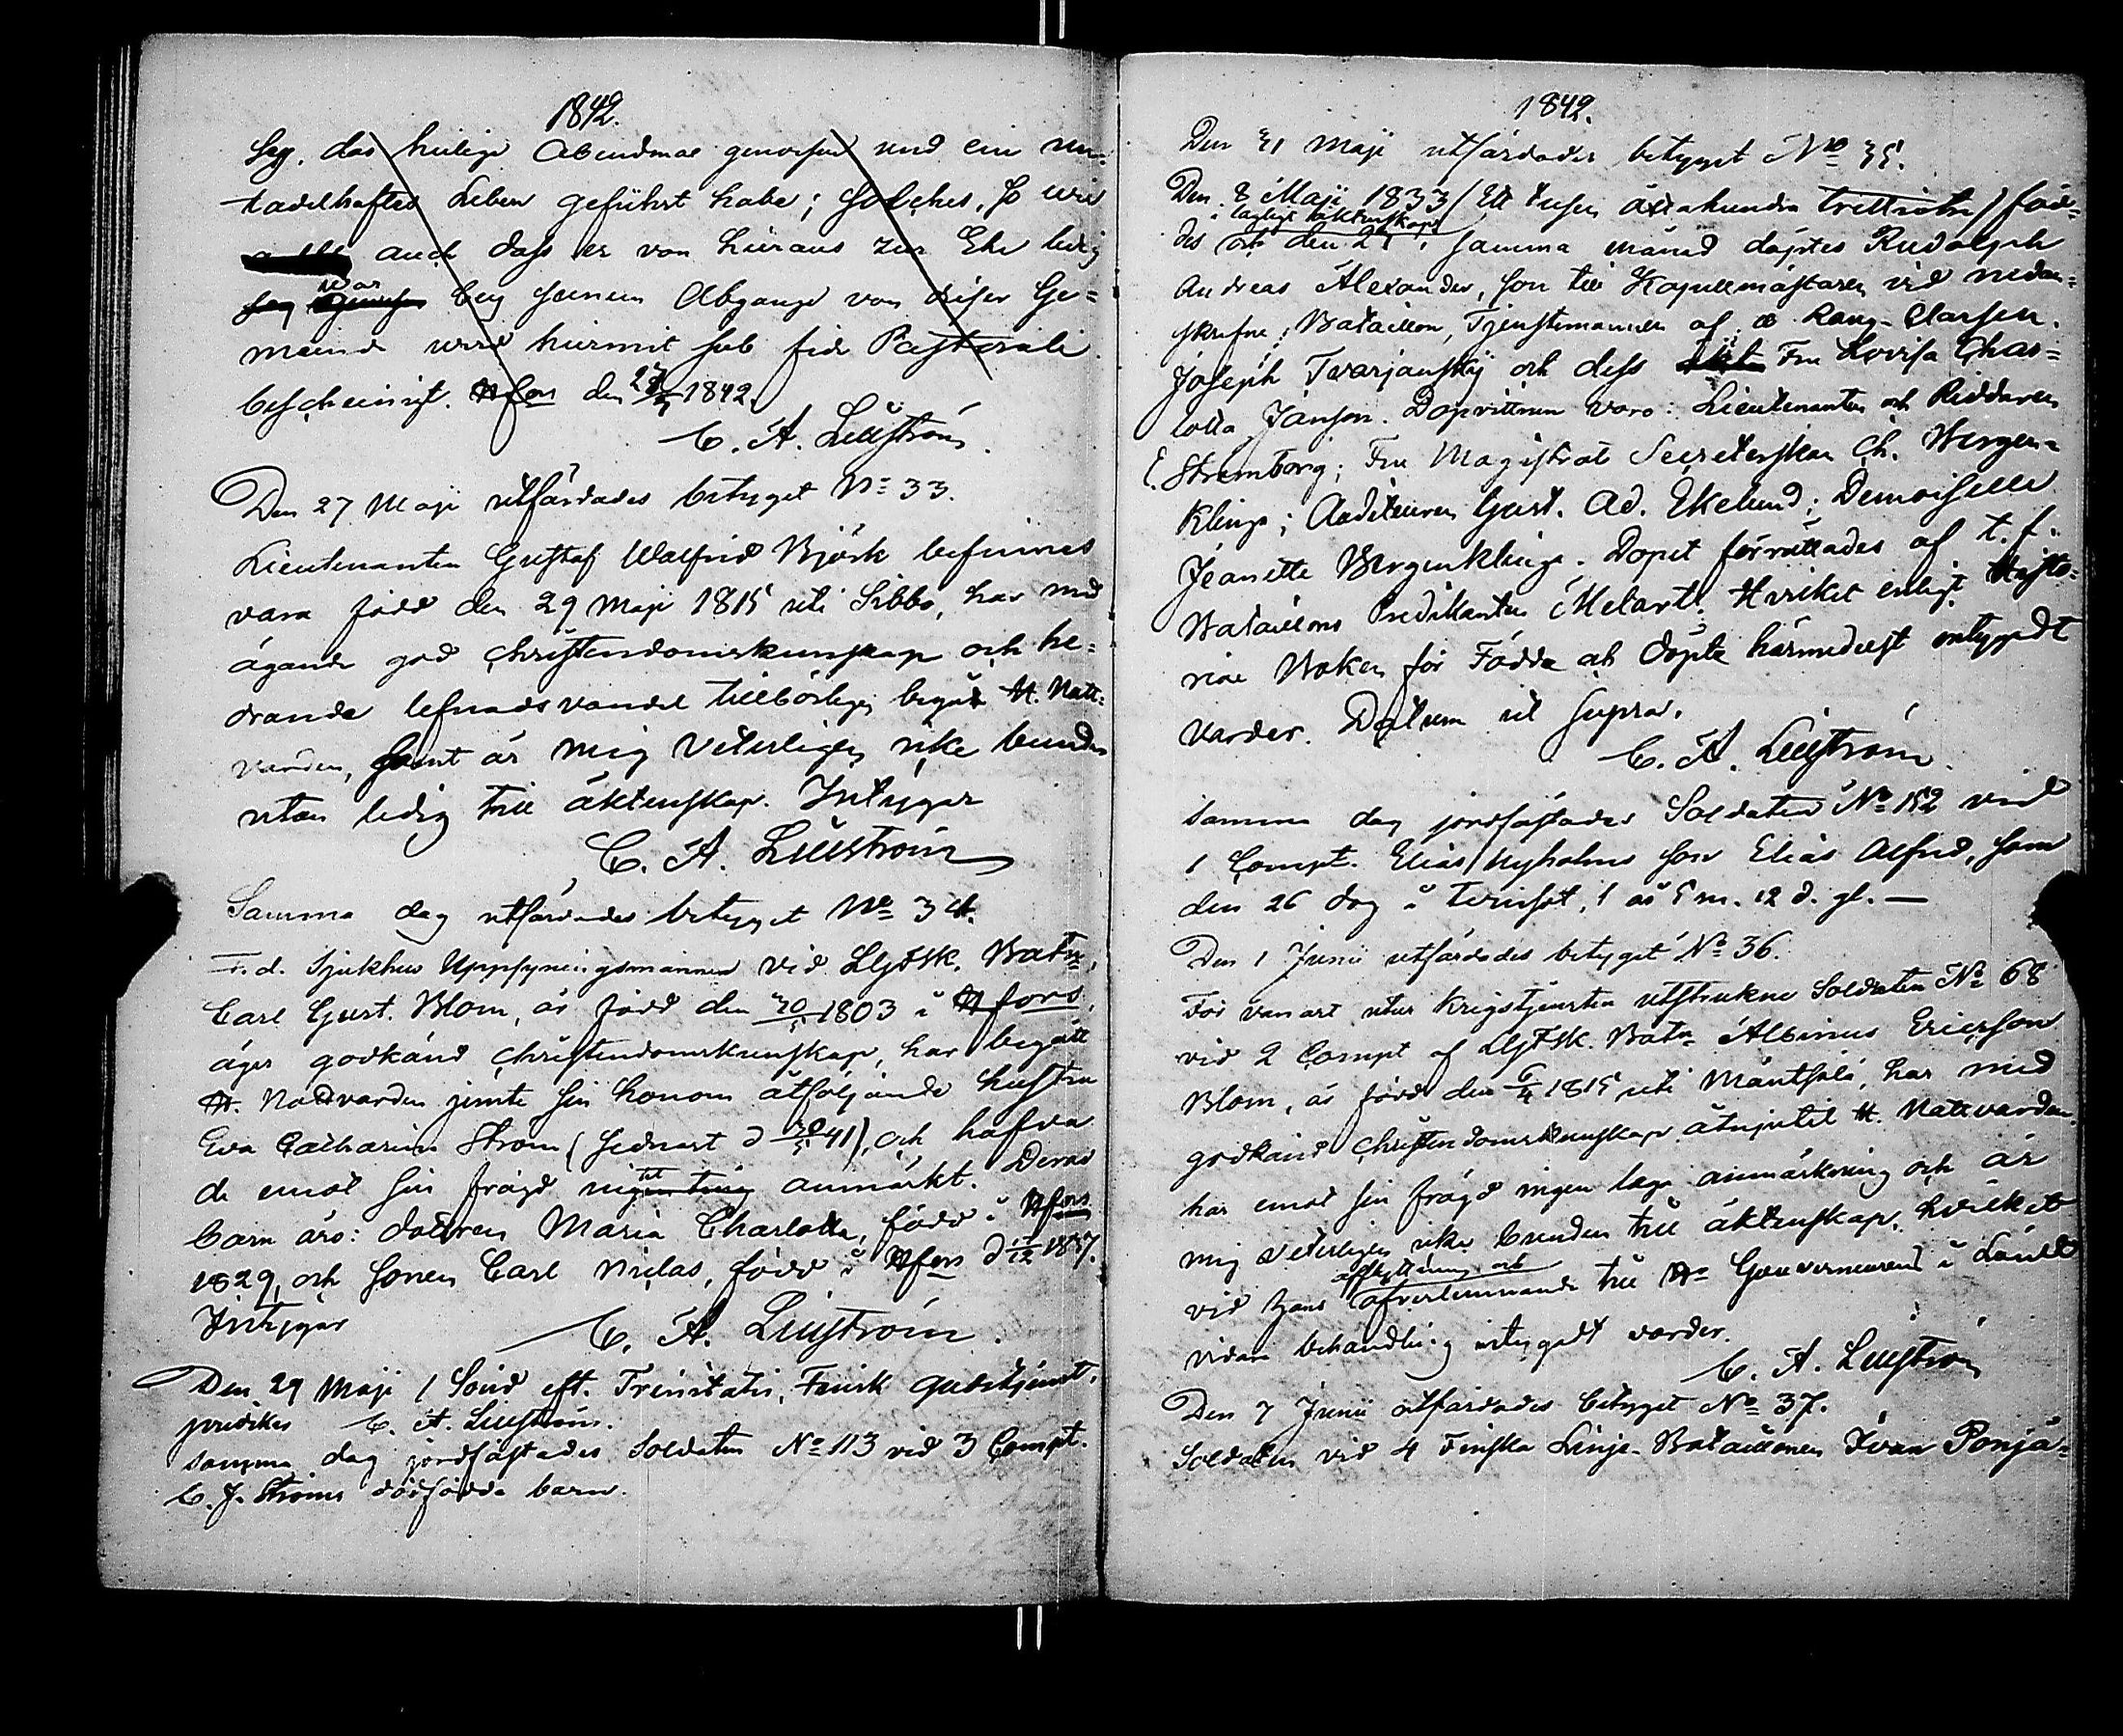 1842.
sey. das heilige Abendmal genossen und ein un-
tadelhaftes Leben geführt habe; solches, so wie
auch dass er von hieraus zur Ehe ledig
war bey seinem Abgange von dieser Ge-
meinde wird hiermit sub fide Pastorali
bescheinigt. Hfors den 27/5 1842.
C. A. Lillström.
Den 27 Maji utfärdades betyget No 33.
Lieutenanten Gustaf Walfrid Björk befinnes
vara född den 29 Maji 1815 uti Sibbo, har med
ägande god Christendomskunskap och he-
drande lefnadsvandel tillbörligen begått H. Natt-
varden, samt är mig veterligen icke bunden
utan ledig till äktenskap. Intygar
C. A. Lillström
Samma dag utfärdades betyget No 34.
F. d. Sjukhus Uppsyningsmannen vid LGFSk. Batn,
Carl Gust. Blom, är född den 30/5 1803 i Hfors,
äger godkänd Christendomskunskap, har begått
H. Nattvarden jemte sin honom åtföljande hustru
Eva Catharina Ström (sednast d 41), och hafva
de emot sin frägd intet anmärkt. Deras
barn äro: dottren Maria Charlotta, född i Hfors
1829, och sonen Carl Niclas, född i Hfors d 1837.
Intygar
C. A. Lillström.
Den 29 Maji 1 Sönd eft. Trinitatis, Finsk Gudstjenst,
predikes C. A. Lillström.
samma dag jordfästades Soldaten No 113 vid 3 Compt.
C. J. Ströms dödfödda barn.
1842.
Den 31 Maji utfärdades betyget No 35.
Den 8 Maji 1833 (Ett tusen åttahundra trettiotre) föd-
i lagligt äktenskap
des och den 21 i samma månad döptes Rudolph
Andreas Alexander, son till Kapellmästaren vid nedan-
skrefne Bataillon, Tjenstemannen af Rang-Classen
Joseph Tvarjanskij och dess Fru Lovisa Char-
lotta Janson. Dopvittnen voro: Lieutenanten och Riddaren
C. Stremborg; Fru Magistrat Secreterskan Ch. Bergen-
klinge; Auditeuren Gust. Ad. Ekelund; Demoiselle
Jeanette Bergenklinge. Dopet förrättades af t. f.
Bataillons Predikanten Melart. Hvilket enligt Histo-
riae Boken för Födda och Döpta härmedelst intygadt
varder. Datum ut supra.
C. A. Lillström.
samma dag jordfästades Soldaten No 152 vid
1 Compt. Elias Nyholms son Elias Alfred, som
den 26 dog i tvinsot, 1 år 5 m. 12 d. gl. —
Den 1 Junii utfärdades betyget No 36.
För vanart utur Krigstjensten utstrukne Soldaten No 68
vid 2 Compt af LGFSk. Batn Albinus Ericsson
Blom, är född den 6/4 1815 uti Mäntsälä, har med
godkänd Christendomskunskap åtnjutit H. Nattvarden,
har emot sin frägd ingen laga anmärkning och är
mig veterligen icke bunden till äktenskap, hvilket
afflyttning och
vid hans öfverlemnande till Hr Gouverneuren i Länet
vidare behandling intygadt varder.
C. A. Lillström
Den 7 Junii utfärdades betyget No 37.
Soldaten vid 4 Finska Linje-Bataillonen Ivan Ponja-